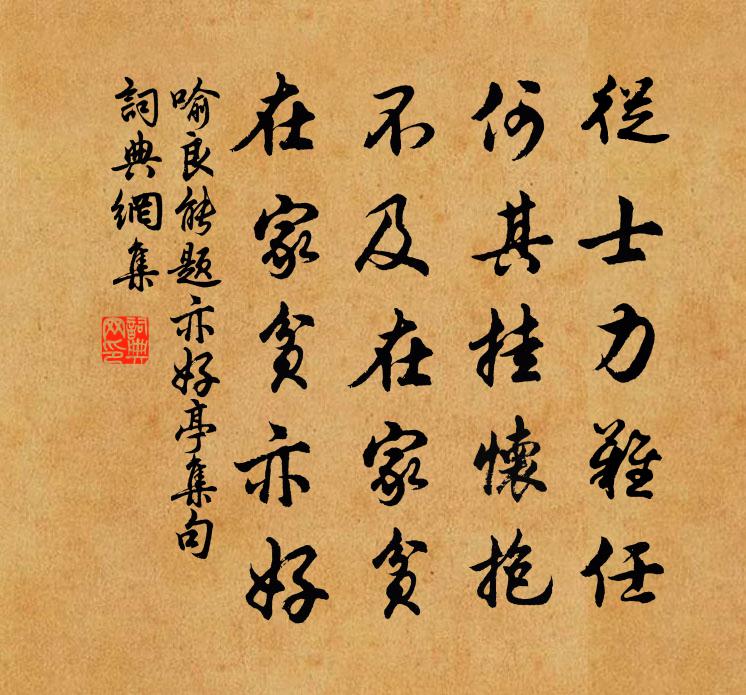 從士力難任
何其挂懷抱
不及在家貧
在家貧亦好
喻良能題亦好亭集句
詞典網集
詞典网印